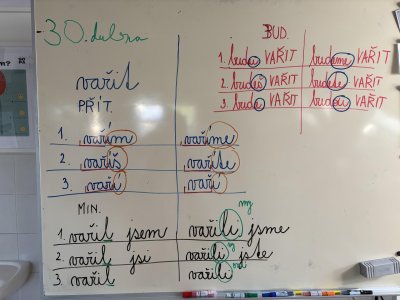 30. dubna
vařit
PŘÍT.
1. vařím vaříme
2. vaříš vaříte
3. vaří vaří
MIN.
1. vařil jsem vařili jsme my
2. vařil jsi vařili jste vy
3. vařil vařili oni
BUD.
1. budu VAŘIT budeme VAŘIT
2. budeš VAŘIT budete VAŘIT
3. bude VAŘIT budou VAŘIT